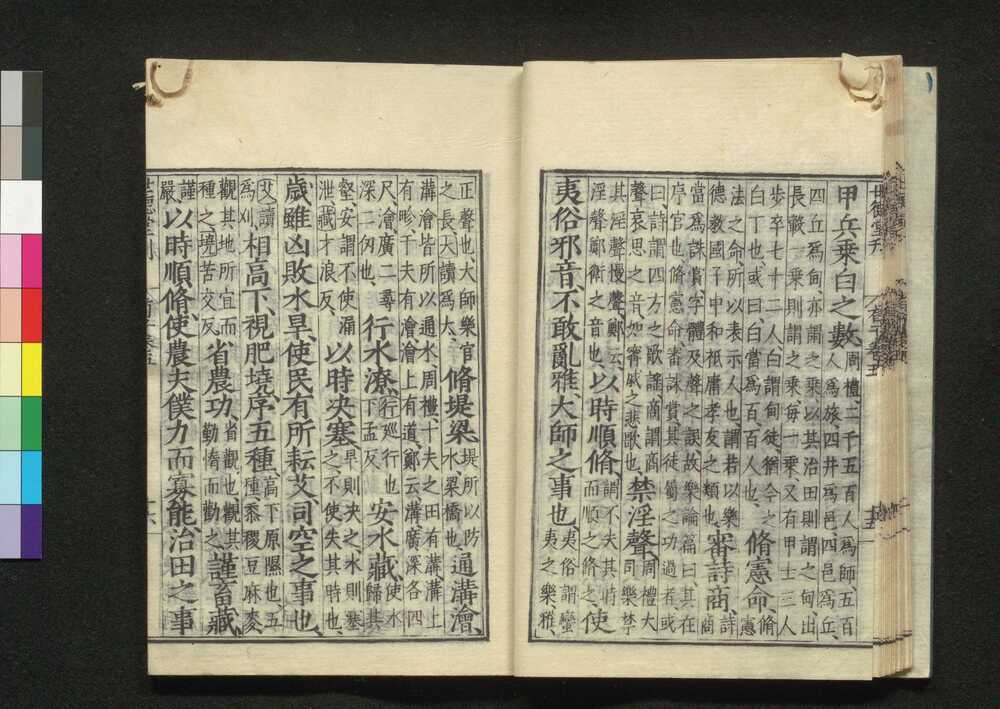 甲兵乘白之數、周禮二千五百人爲師、五百人爲旅、四井爲邑、四邑爲丘、
四丘爲甸、亦謂之乘以其治田則謂之甸、出長轂一乘則謂之乘、每一乘、又有甲士三人
步卒七十二人、白謂甸徒、猶今之白丁也、或曰、白當爲百、百人也、脩憲命、脩憲
法之命、所以表示人也、謂若以樂德教國子中和祇庸孝友之類也、審詩商、詩商
當爲誅賞、字體及聲之誤、故樂論篇曰、其在序官也、脩憲命、審誅賞、其徒蜀之功過者、或
曰、詩謂四方之歌謠、商謂商聲哀思之音、如甯戚之悲歌也、禁淫聲、周禮大司樂禁
其淫聲慢聲、鄭云、淫聲鄭衛之音也、以時順脩、謂不失其時而順之脩之、使
夷俗邪音、不敢亂雅、大師之事也、夷俗謂蠻夷之樂、雅、
正聲也、大師樂官之長、大讀爲太、脩堤梁、堤所以防水、梁橋也、通溝澮、
溝澮皆所以通水、周禮、十夫之田有溝、溝上有畛、千夫有澮、澮上有道、鄭云溝廣深各四
尺、澮廣二尋深二仞也、行水潦、行巡行也、下孟反、安水藏、使水歸其
壑、安謂不使漏泄、藏才浪反、以時决塞、旱則决之、水則塞之、不使失其時也、
歲雖凶敗水旱、使民有所耘艾、司空之事也、
艾讀爲刈、相高下、視肥墝、序五種、高下原隰也、五種、黍稷豆麻麥
觀其地所宜而種之、墝苦交反、省農功、省觀也、觀其勤惰而勸之、謹蓄藏、
謹嚴、以時順脩、使農夫僕力而寡能、治田之事